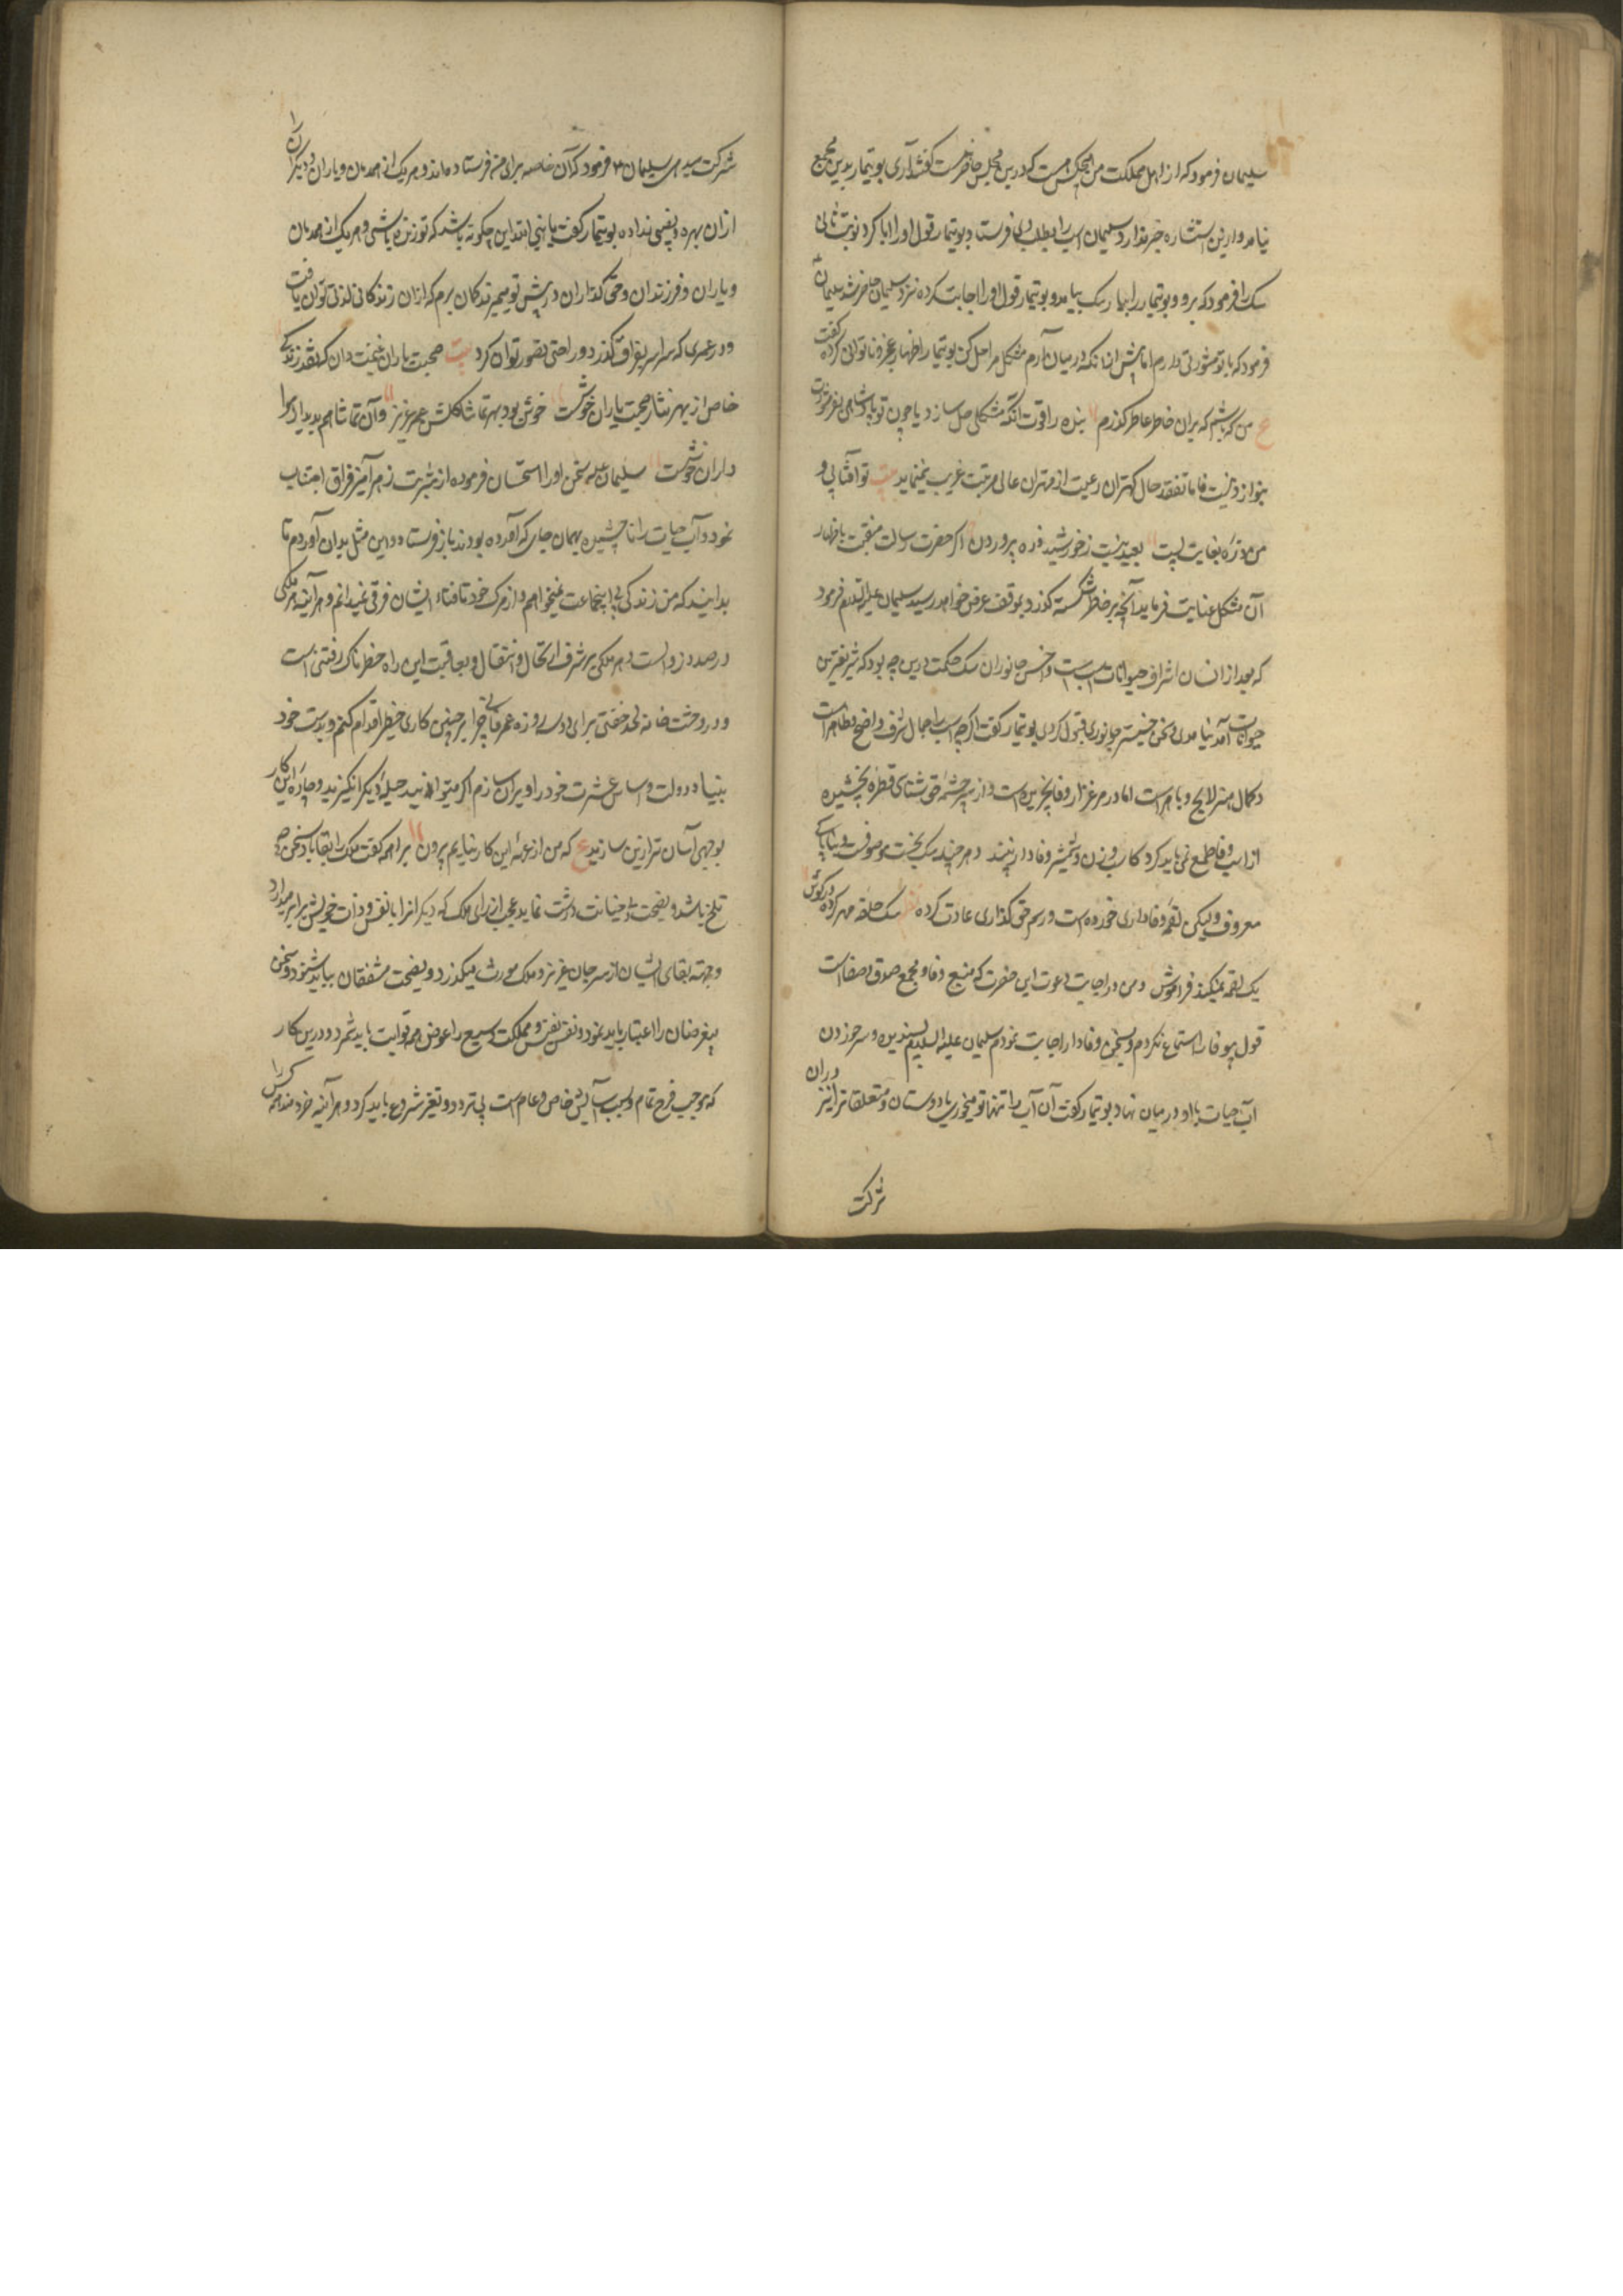 سلیمان فرمود که از اهل مملکت من هیچکس هست که درین مجلس حاضر نیست گفتند آری بوتیمار بدین مجمع
نیامد و ازین استشاره خبر ندارد سلیمان اسپ را بطلب وی فرستاد بوتیمار قول او را ابا کرد نوبت ثانی
سک را فرمود که برو و بوتیمار را بیار سک بیامد و بوتیمار قول او را اجابت کرده نزد سلیمان حاضر شد سلیمان
فرمود که با تو مشورتی دارم اما پیش از انکه در میان آرم مشکل مرا حل کن بوتیمار اظهار عجز و ناتوانی کرده گفت
ع من که باشم که بران خاطر عاطر گذرم بنده را قوت آنکه مشکلی حل سازد یا چون تو پادشاهی بعز مشورت
بنوازد نیست فاما تفقد حال کهتران رعیت از مهتران عالی مرتبت غریب نمینماید بیت تو آفتابی و
من ذره بغایت پست بعید نیست ز خورشید ذره پروردن اگر حضرت رسالت منقبت باظهار
آن مشکل عنایت فرماید آنچه بر خاطر شکسته گذرد بموقف عرض خواهد رسید سلیمان علیه السلام فرمود
که بعد از انسان اشراف حیوانات اسپست و اخس جانوران سک حکمت درین چه بود که بشریفترین
حیوانات آمد نیامدی و سخن خسیستر جانوری قبول کردی بوتیمار گفت اگرچه اسپ را جمال شرف واضح و ظاهر است
و کمال هنر لایح و باهر است اما در مرغزار وفا نچریده است و از سرچشمه حق شناسی قطره نچشیده
از اسپ وفا طمع نمی باید کرد کاسپ و زن و شمشیر وفادار نیند و هر چند سک بخست موصوفست و بناپاکی
معروف ولیکن لقمه وفاداری خورده است و رسم حق گذاری عادت کرده نظم سک حلقه مهر کرده در گوش
یک لقمه نمیکند فراموش و من در اجابت دعوت این حضرت که منبع وفا و مجمع صدق و صفاست
قول بیوفا را استماع نکردم و سخن وفادار اجابت نمودم سلیمان علیه السلام پسندیده و سر خوردن
آب حیات با او در میان نهاد بوتیمار گفت آن آب را تنها تو میخوری یا دوستان و متعلقانرا نیز دران
شرکت
شرکت میدهی سلیمان ع فرمود که آن خاصه برای من فرستاده اند و هر یک از همدمان و یاران و دیگرانرا
ازان بهره و نصیبی نداده بوتیمار گفت یا نبی الله این چگونه باشد که تو زنده باشی و هر یک از همدمان
و یاران و فرزندان و حق گذاران در پیش تو میمیرند گمان نبرم که ازان زندگانی لذتی توان یافت
و در عمری که سراسر بفراق گذرد راحتی تصور توان کرد بیت صحبت یاران غنیمت دان که نقد زندگی
خاص از بهر نثار صحبت یاران خوشست خوش بود بهر تماشا گلشن عمر عزیز و آن تماشا هم بدیدار هوا
داران خوشست سلیمان علیه سخن او را استحسان فرموده از شربت زهرآمیز فراق اجتناب
نمود و آب حیات را ناچشیده بهمان جای که آورده بودند باز فرستاد و این مثل بدان آوردم تا
بدانید که من زندگی بی اینجماعت نمیخواهم و از مرگ خود تا فناء ایشان فرقی نمیدانم و هر آینه هر ملکی
در صدد زوالست و هر ملکی بر شرف ارتحال و انتقال و بعاقبت این راه خطرناک رفتنی است
و در وحشت خانه لحد خفتنی برای دو سه روزه عمر فانی چرا بر چنین کاری خطیر اقدام کنم و بدست خود
بنیاد دولت و اساس عشرت خود را ویران سازم اگر میتوانید حیلهٔ دیگر انگیزید و چاره این کار
بوجهی آسان تر ازین سازید ع که من از عهده این کار نیایم بیرون براهمه گفت ملک را بقا باد سخن حق
تلخ باشد و نصیحت بی خیانت درشت نماید عجب از رای ملک که دیگرانرا با نفس و ذات خویش برابر میدارد
و جهت بقای ایشان از سر جان عزیز و ملک موروث میگذرد و نصیحت مشفقان بباید شنود و سخن
بیغرضان را اعتبار باید نمود و نفس نفیس و مملکت وسیع را عوض همه فوایت باید شمرد و درین کار
که موجب فرح تمام و سبب آسایش خاص و عام است بی تردد و تغیر شروع باید کرد و هر آینه خردمند همه کس را